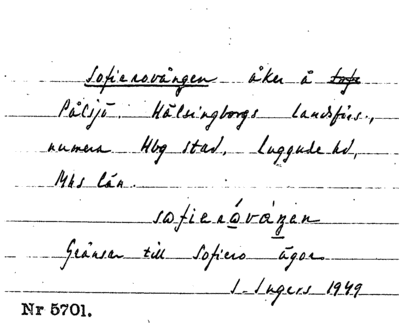 Sofierovången åker å
Pålsjö. Hälsingborgs landsförs.,
numera Hbg stad, Luggude hd,
Mhs län.
sofierωvάŋen
Gränsar till Sofiero ägor
I. Ingers 1949
Nr 5701.